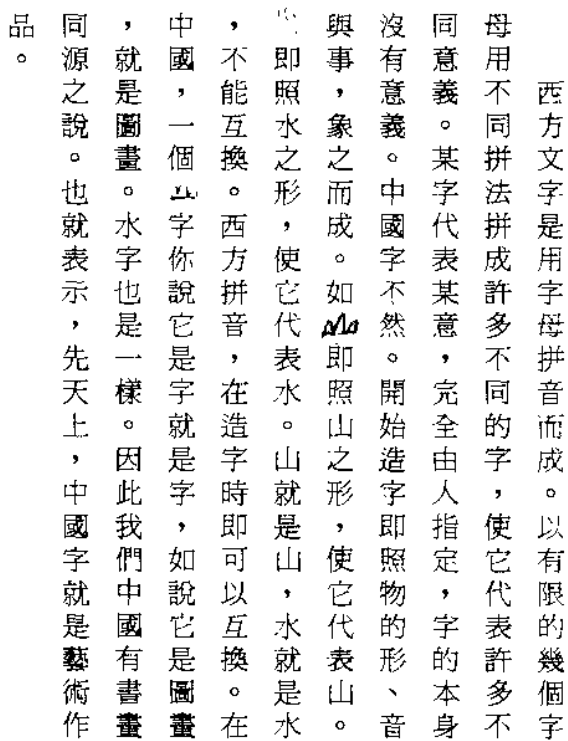 西方文字是用字母拼音而成。以有限的幾個字
母用不同拼法拼成許多不同的字，使它代表許多不
同意義。某字代表某意，完全由人指定，字的本身
沒有意義。中國字不然。開始造字即照物的形、音
與事，象之而成。如即照山之形，使它代表山。
即照水之形，使它代表水。山就是山，水就是水
，不能互換。西方拼音，在造字時即可以互換。在
中國，一個字你說它是字就是字，如說它是圖畫
，就是圖畫。水字也是一樣。因此我們中國有書畫
同源之說。也就表示，先天上，中國字就是藝術作
品。